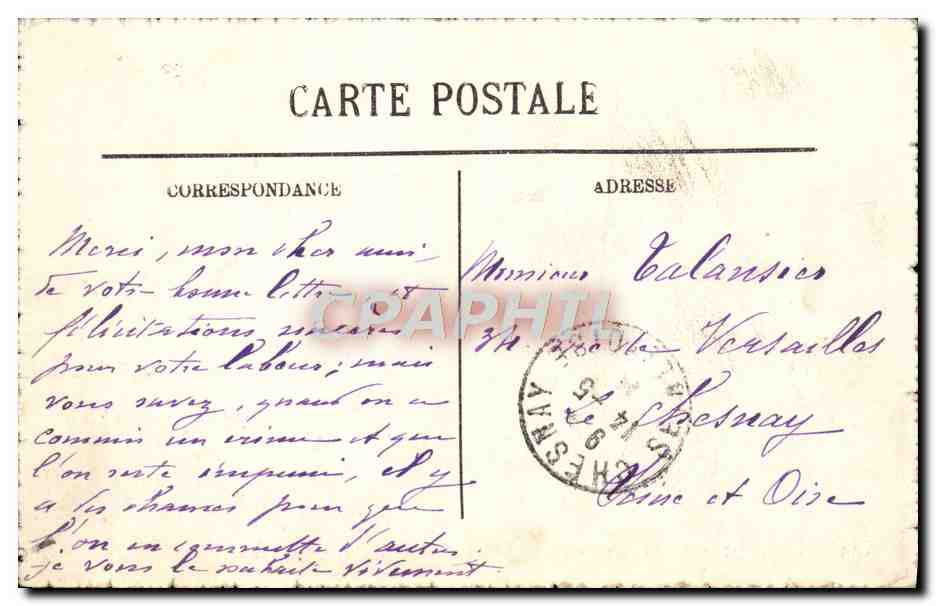 CARTE POSTALE
CORRESPONDANCE
ADRESSE
Merci, mon cher ami
de votre bonne lettre et
félicitations
pour votre labeur; mais
vous savez, quand on a
commis un crime et que
l'on reste impuni, il y
a des chances pour que
l'on en commette d'autres.
je vous le souhaite vivement
Monsieur Talansier
34 rue de Versailles
Le Chesnay
Seine et Oise
CHESNAY
CPAPHIL